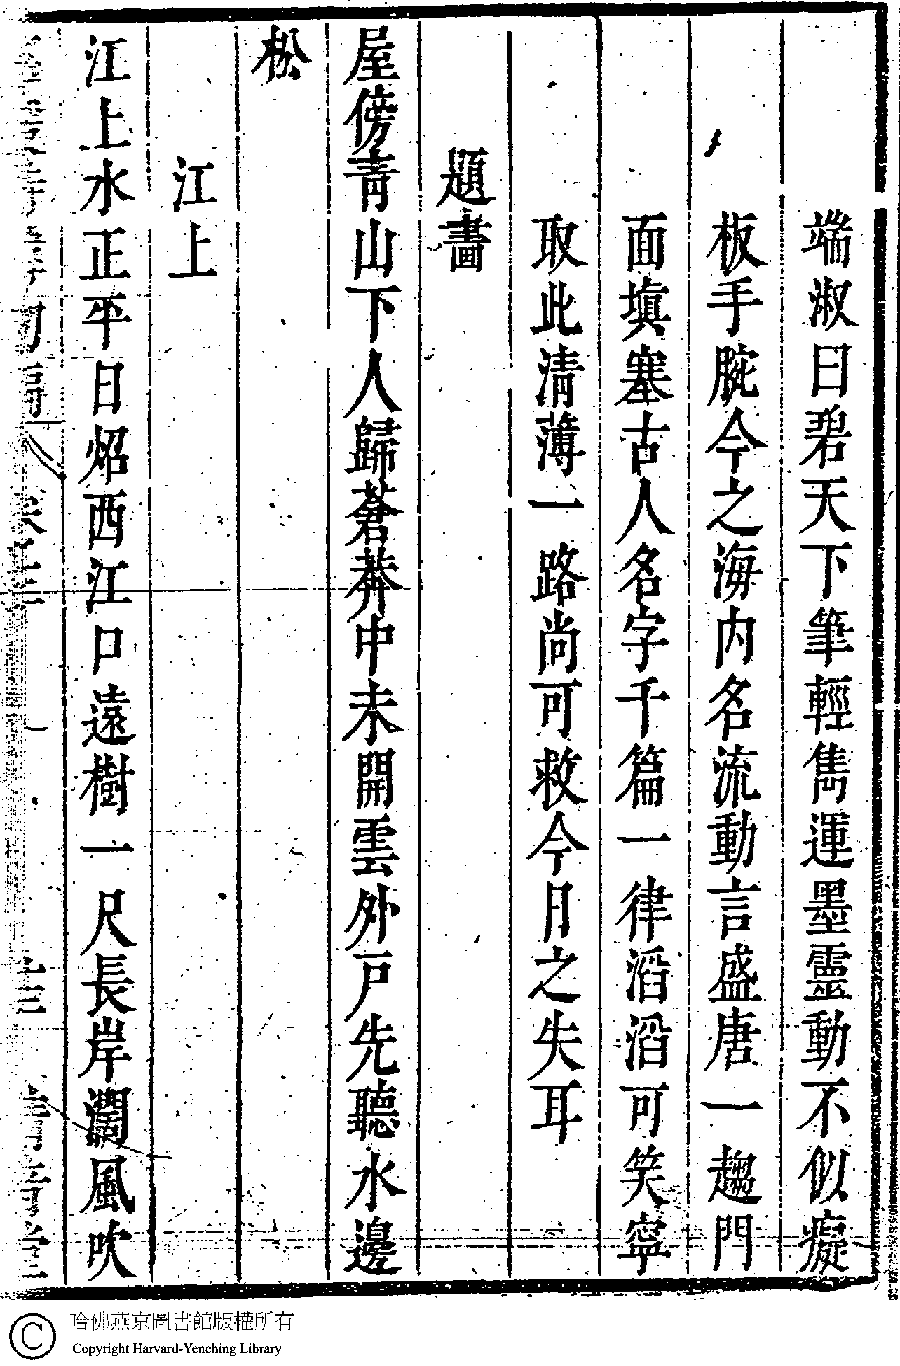 端淑曰碧天下筆輕雋運墨靈動不似癡
板手腕今之海內名流動言盛唐一趨門
面填塞古人名字千篇一律滔滔可笑寧
取此清薄一路尚可救今日之失耳
題畫
屋傍青山下人歸蒼莽中未開雲外戶先聽水邊
松
江上
江上水正平日炤西江口遠樹一尺長岸濶風吹
哈佛燕京圖書館版權所有
Copyright Harvard-Yenching Library